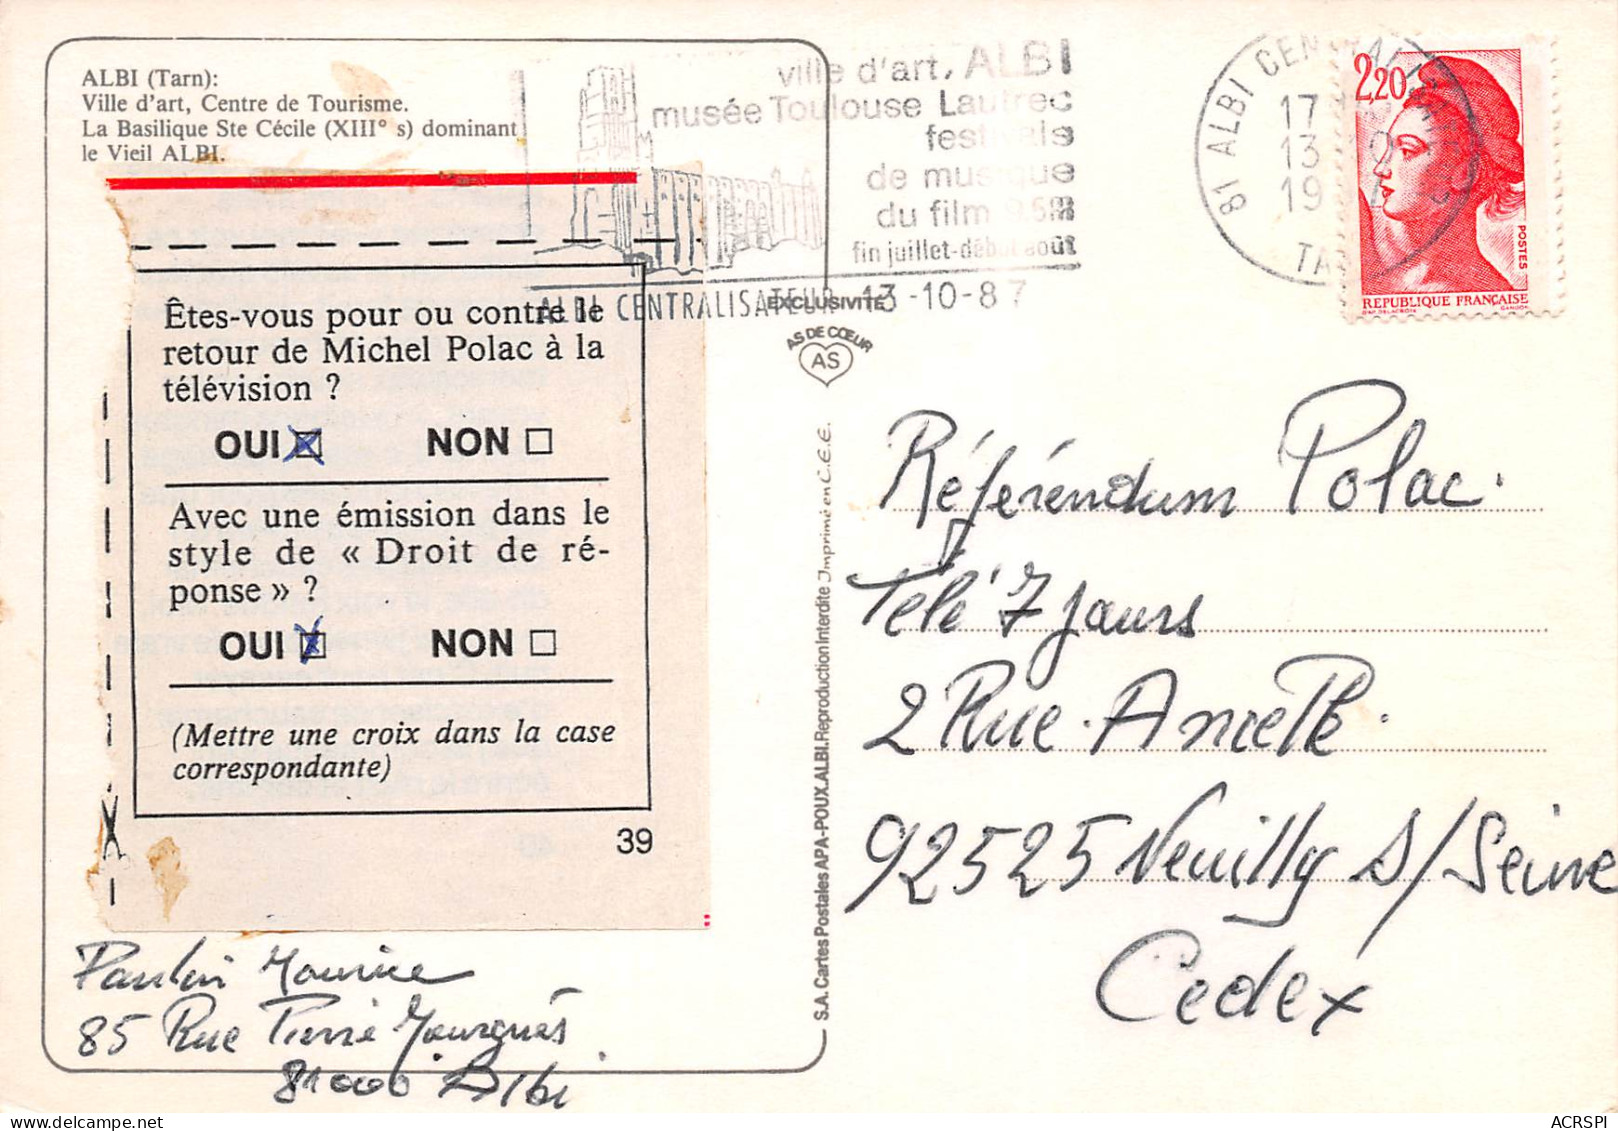 ALBI (Tarn):
Ville d'art, Centre de Tourisme.
La Basilique Ste Cécile (XIII° s) dominant
le Vieil ALBI.
ville d'art, ALBI
musée Toulouse Lautrec
festivals
de musique
du film 9,5m
fin juillet-début août
ALBI CENTRALISATEUR 13-10-87
81 ALBI CENTRALISATEUR
17
13
19
TARN
2,20
POSTES
REPUBLIQUE FRANÇAISE
D'AP. DELACROIX GANDON
Êtes-vous pour ou contre le
retour de Michel Polac à la
télévision ?
OUI NON
Avec une émission dans le
style de « Droit de ré-
ponse » ?
OUI NON
(Mettre une croix dans la case
correspondante)
39
Paulin Maurice
85 Rue Pierre Mourgués
81000 Albi
EXCLUSIVITÉ
AS DE CŒUR
AS
S.A. Cartes Postales APA-POUX.ALBI. Reproduction Interdite Imprimé en C.E.E.
Référendum Polac.
Télé 7 jours
2 Rue Ancelle.
92525 Neuilly s/Seine
Cedex
ACRSPI